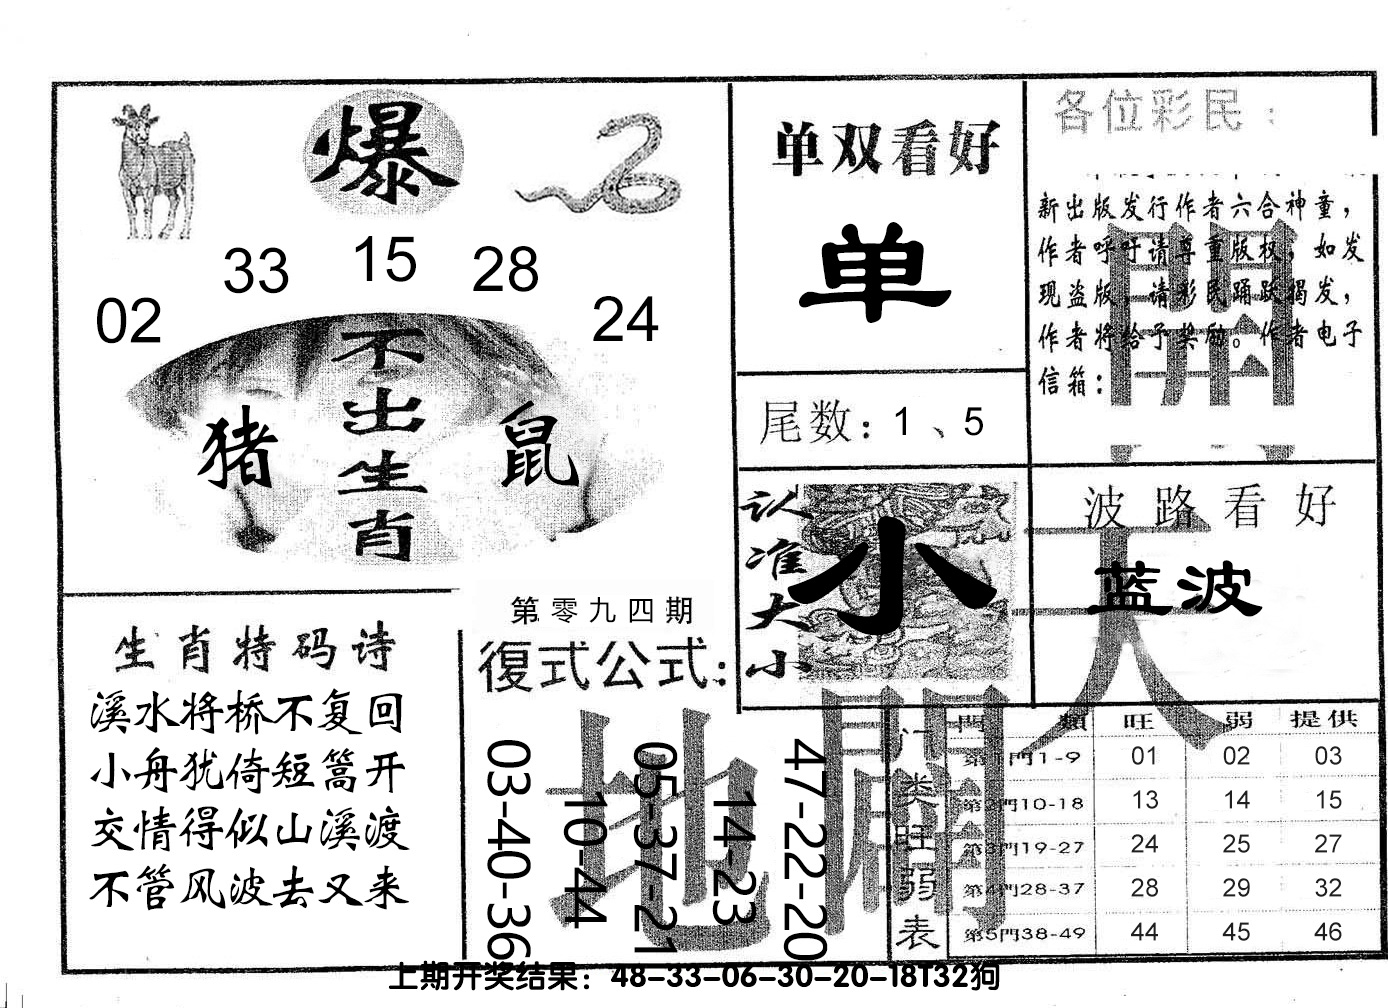 爆
33 15 28
02 24
不出生肖
猪 鼠
单双看好
单
尾数：1、5
各位彩民：
新出版发行作者六合神童，
作者呼吁请尊重版权，如发
现盗版，请彩民踊跃揭发，
作者将给予奖励。作者电子
信箱：
認准大小
小
波路看好
蓝波
開天
地闢
生肖特码诗
溪水将桥不复回
小舟犹倚短篙开
交情得似山溪渡
不管风波去又来
第零九四期
復式公式：
03-40-36
10-44
05-37-21
14-23
47-22-20
门类旺弱表
門類 旺 弱 提供
第1門1-9 01 02 03
第2門10-18 13 14 15
第3門19-27 24 25 27
第4門28-37 28 29 32
第5門38-49 44 45 46
上期开奖结果：48-33-06-30-20-18T32狗